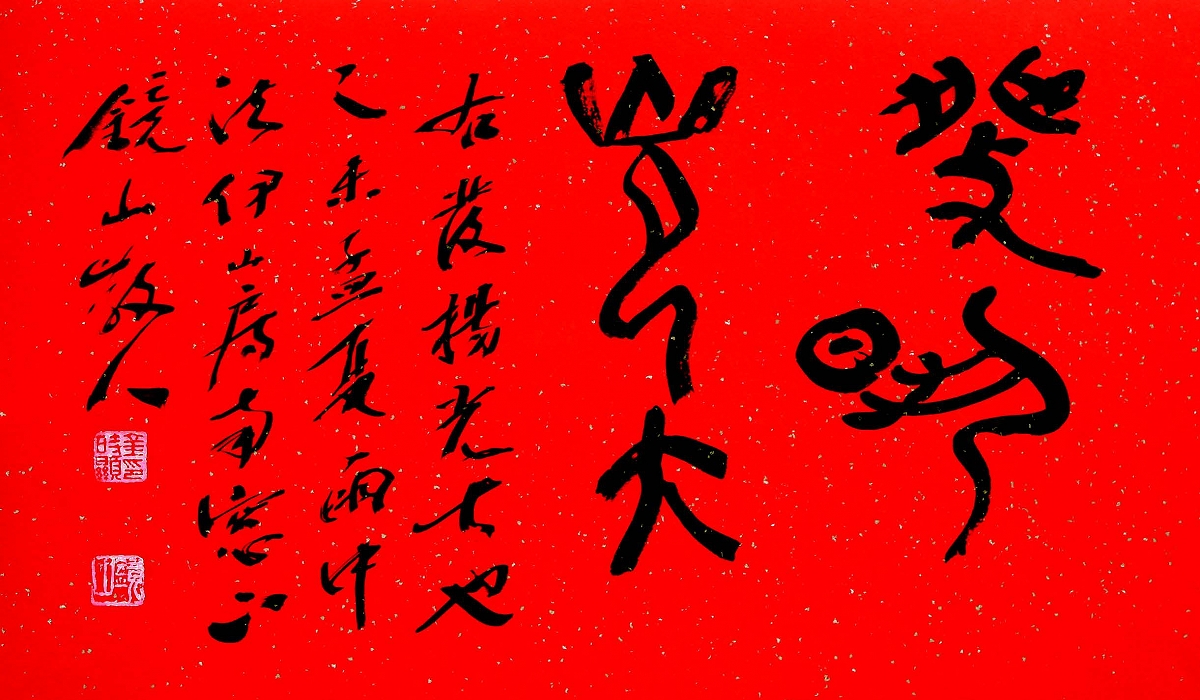 發揚
光大
右發揚光大也
乙未孟夏雨中
法伊山房南窓下
鏡山散人